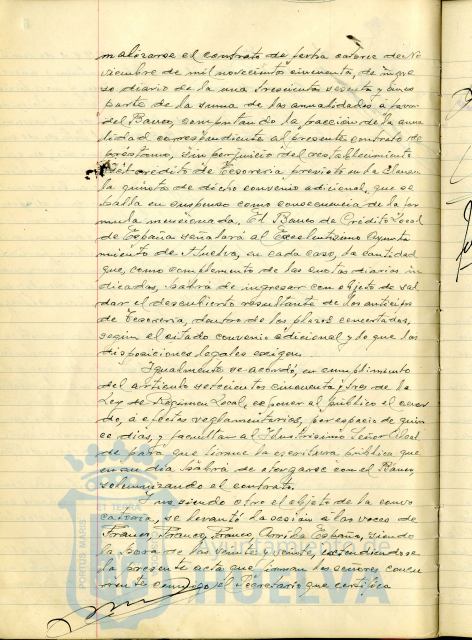 malizarse el contrato de fecha catorce de No
viembre de mil novecientos cincuenta, de ingre
so diario de la una trescientos sesenta y cinco
parte de la suma de las anualidades a favor
del Banco, computando la fracción de la anua
lidad correspondiente al presente contrato de
préstamo, sin perjuicio del restablecimiento
del crédito de Tesorería previsto en la Cláusu
la quinta de dicho convenio adicional, que se
halla en suspenso como consecuencia de la fór
mula mencionada, El Banco de Crédito Local
de España señalará al Excelentísimo Ayunta
miento de Huelva, en cada caso, la cantidad
que, como complemento de las cuotas diarias in
dicadas, habrá de ingresar con objeto de sal
dar el descubierto resultante de los anticipos
de Tesorería, dentro de los plazos concertados,
según el citado convenio adicional y lo que las
disposiciones legales exigen.
Igualmente se acordó, en cumplimiento
del artículo setecientos cincuenta y tres de la
Ley de Régimen Local, exponer al público el acuer
do, a efectos reglamentarios, por espacio de quin
ce días, y facultar al Ilustrísimo Señor Alcal
de para que firme la escritura pública que
en su día habrá de otorgarse con el Banco,
solemnizando el contrato.
Y no siendo otro el objeto de la convo
catoria, se levantó la sesión a las voces de
Franco, Franco, Franco, Arriba España, siendo
la hora de las veinte y veinte, extendiéndose
la presente acta que firman los señores concu
rrentes conmigo el Secretario que certifica
PORTUS MARIS
ET TERRAE
Ayuntamiento de
HUELVA